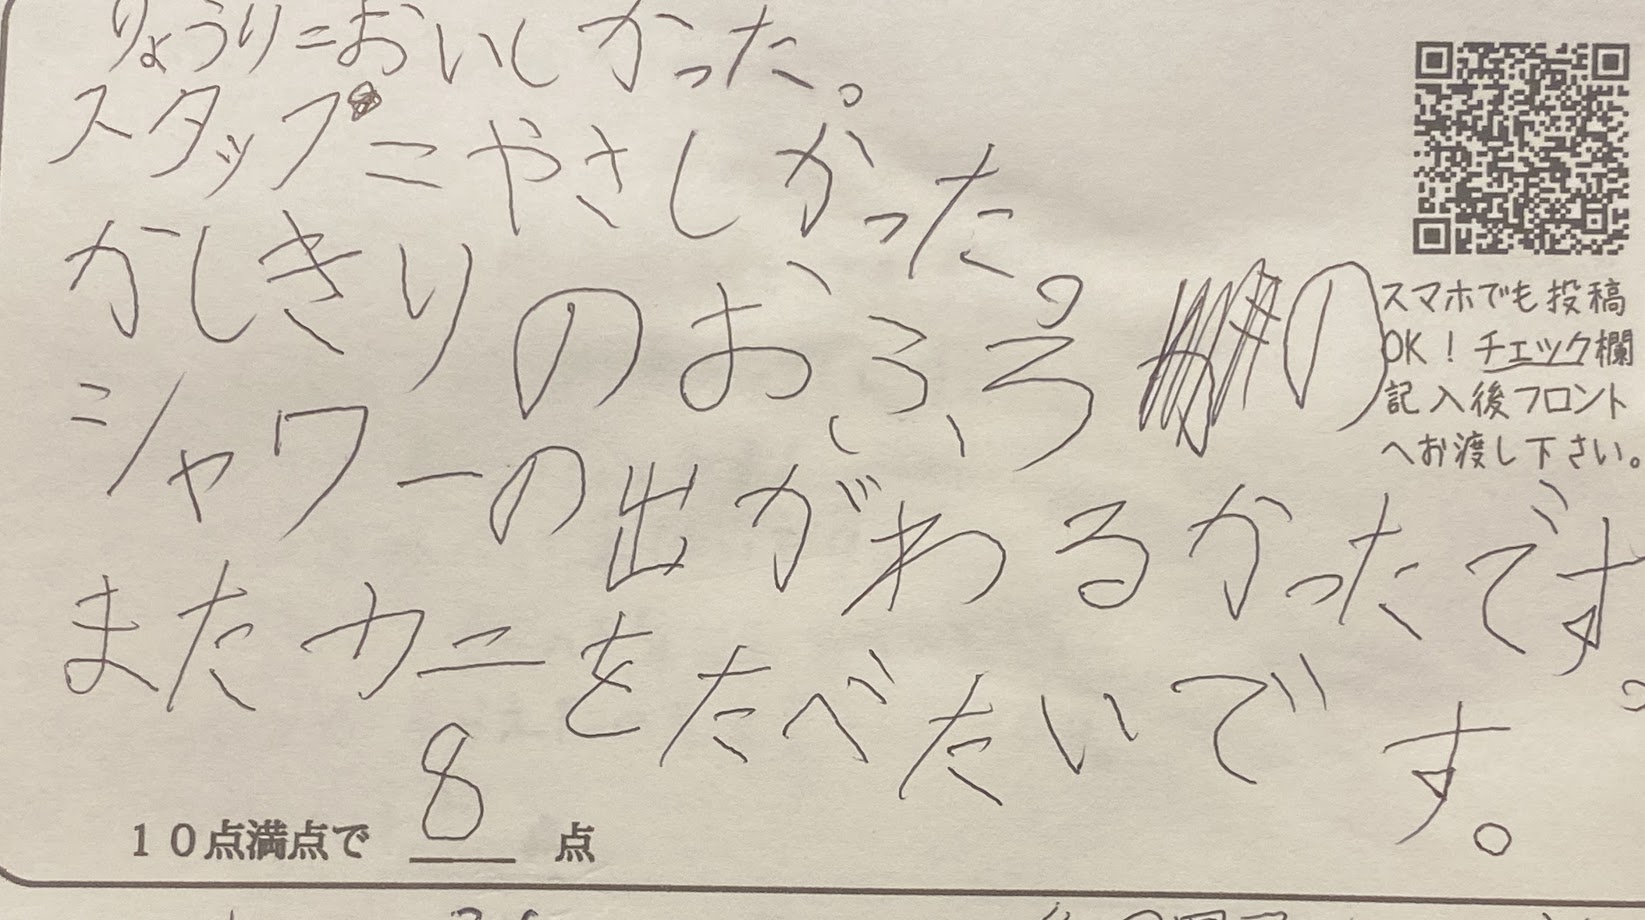 りょうり=おいしかった。
スタップ=やさしかった。
かしきりのおふろの
シャワーの出がわるかったです。
またカニをたべたいです。
10点満点で 8 点
スマホでも投稿
OK！チェック欄
記入後フロント
へお渡し下さい。